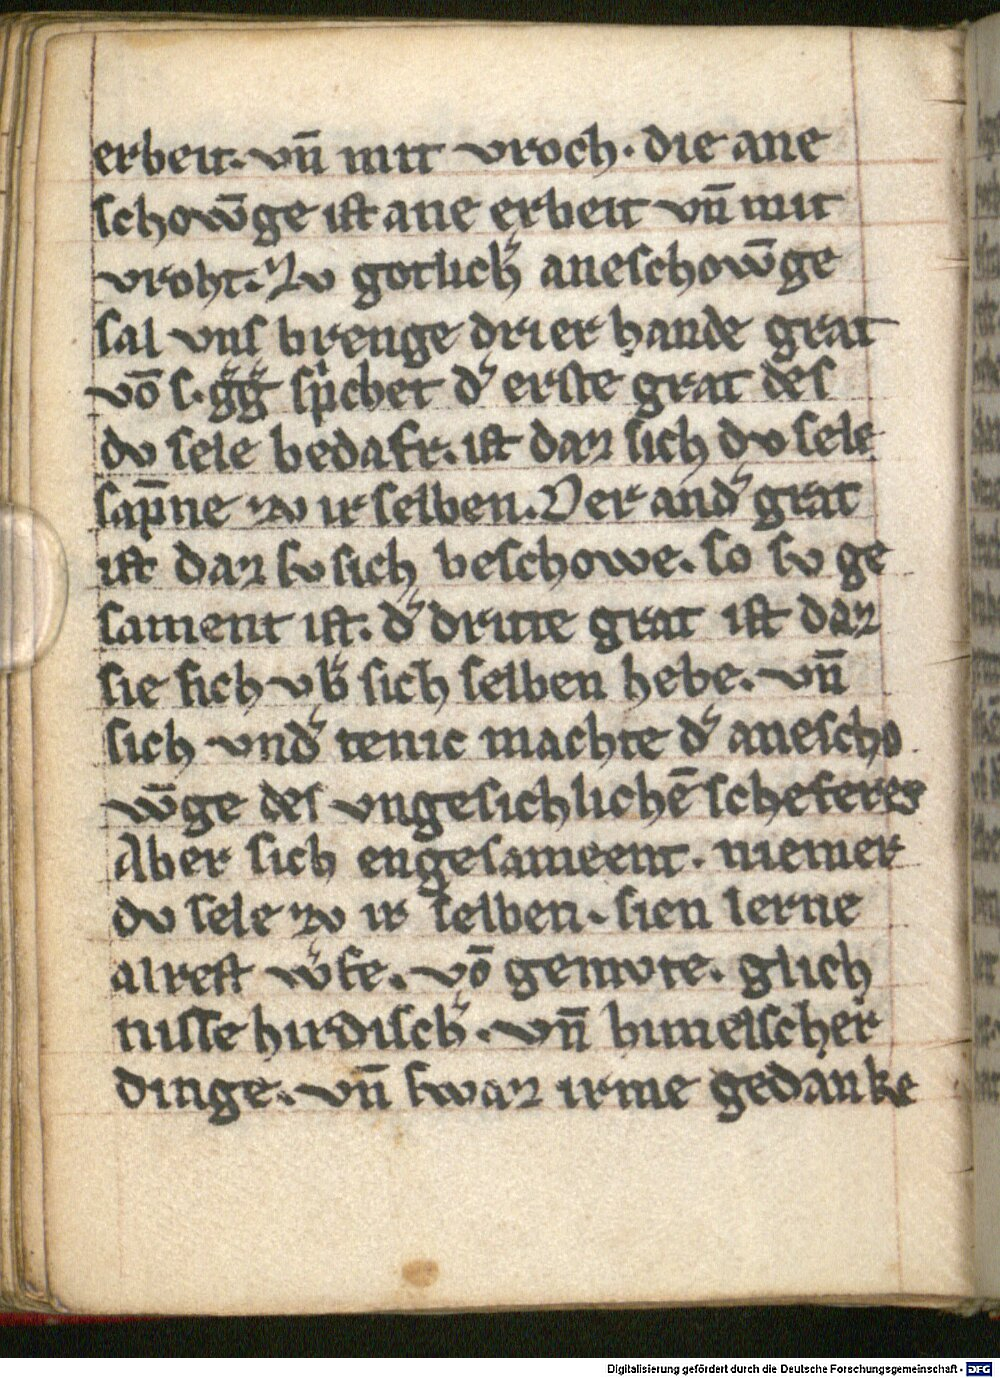 erbeit. vn̄ mit vroch. die ane
schow̄ge ist ane erbeit vn̄ mit
vroht. Zv gotlicħ aneschow̄ge
sal vns brenge drier hande grat
vō s. g̾g̾ sp̍chet d̾ erste grat des
dv sele bedafr. ist daz sich dv sele
sap̄ne zv ir selben. Der and̾ grat
ist daz sv sich beschowe. so sv ge
sament ist. d̾ dritte grat ist daz
sie sich vb̾ sich selben hebe. vn̄
sich vnd̾ tenic machte d̾ anescho
w̄ge des vngesichlichē scheferes
Aber sich engesameent. niemer
dv sele zv ir selben. sien lerne
alrest w̾fe. vō gemvte. glich
nisse hirdisch̾. vn̄ himelscher
dinge. vn̄ swaz irme gedanke
Digitalisierung gefördert durch die Deutsche Forschungsgemeinschaft - DFG